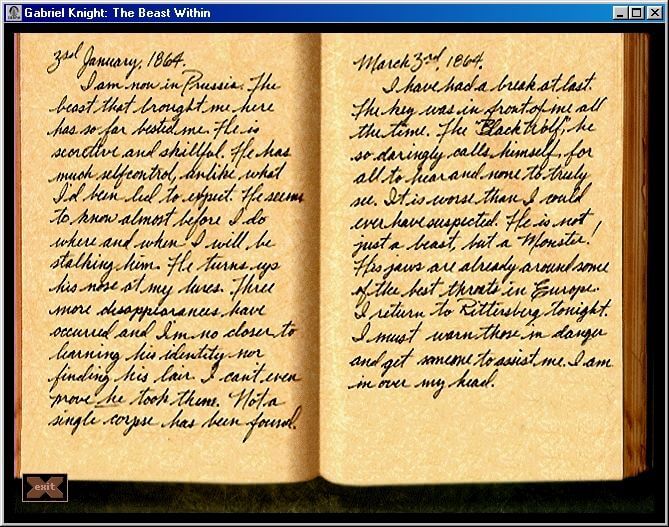 Gabriel Knight: The Beast Within
3rd January, 1864.
I am now in Prussia. The
beast that brought me here
has so far bested me. He is
secretive and skillful. He has
much self control, unlike what
I'd been led to expect. He seems
to know almost before I do
where and when I will be
stalking him. He turns up
his nose at my lures. Three
more disappearances have
occurred and I'm no closer to
learning his identity nor
finding his lair. I can't even
prove he took them. Not a
single corpse has been found.
March 3rd, 1864.
I have had a break at last.
The key was in front of me all
the time. The "Black Wolf", he
so daringly calls himself, for
all to hear and none to truly
see. It is worse than I could
ever have suspected. He is not
just a beast, but a Monster!
His jaws are already around some
of the best throats in Europe.
I return to Rittersberg tonight.
I must warn those in danger
and get someone to assist me. I am
in over my head.
exit